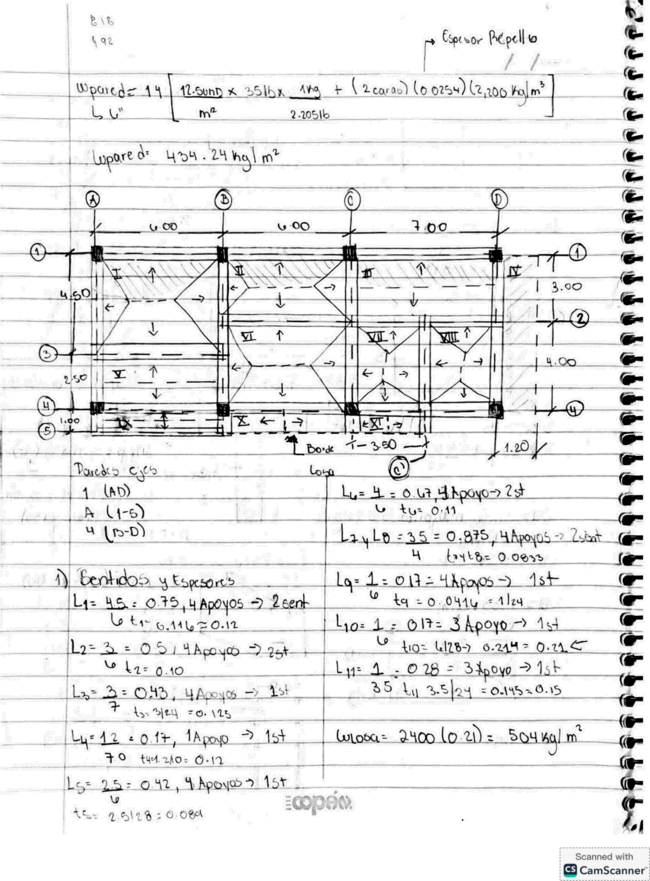 Espesor Repello
wpared = 14 [ 12.5UND/m² x 35lb x 1kg/2.205lb + (2 caras)(0.0254)(2,200 kg/m³ ]
↳ 6"
Wpared = 434.24 kg/m²
A B C D
6.00 6.00 7.00
1 I II III IV 1
3.00
4.50
2
3 VI VII VIII
4.00
2.50 V
4 4
1.00 IX X XI
5 Borde 3.50 1.20
Losa C'
Paredes ejes
1 (AD)
A (1-5)
4 (B-D)
1) Sentidos y Espesores
L1 = 4.5/6 = 0.75, 4 Apoyos → 2sent
t1 = 0.116 ≈ 0.12
L2 = 3/6 = 0.5, 4 Apoyos → 2st
t2 = 0.10
L3 = 3/7 = 0.43, 4 Apoyos → 1st
t3 = 3/24 = 0.125
L4 = 1.2/7.0 = 0.17, 1 Apoyo → 1st
t4 = 1.2/10 = 0.12
L5 = 2.5/6 = 0.42, 4 Apoyos → 1st
t5 = 2.5/28 = 0.089
L6 = 4/6 = 0.67, 4 Apoyo → 2st
t6 = 0.11
L7 y L8 = 3.5/4 = 0.875, 4 Apoyos →
t7 y t8 = 0.0833
L9 = 1/6 = 0.17 = 4 Apoyos → 1st
t9 = 0.0416 = 1/24
L10 = 1/6 = 0.17 = 3 Apoyo → 1st
t10 = 6/28 → 0.214 = 0.21 ←
L11 = 1/3.5 = 0.28 = 3 Apoyo → 1st
t11 3.5/24 = 0.145 = 0.15
wLosa = 2400 (0.21) = 504 kg/m²
copán
Scanned with
CS CamScanner